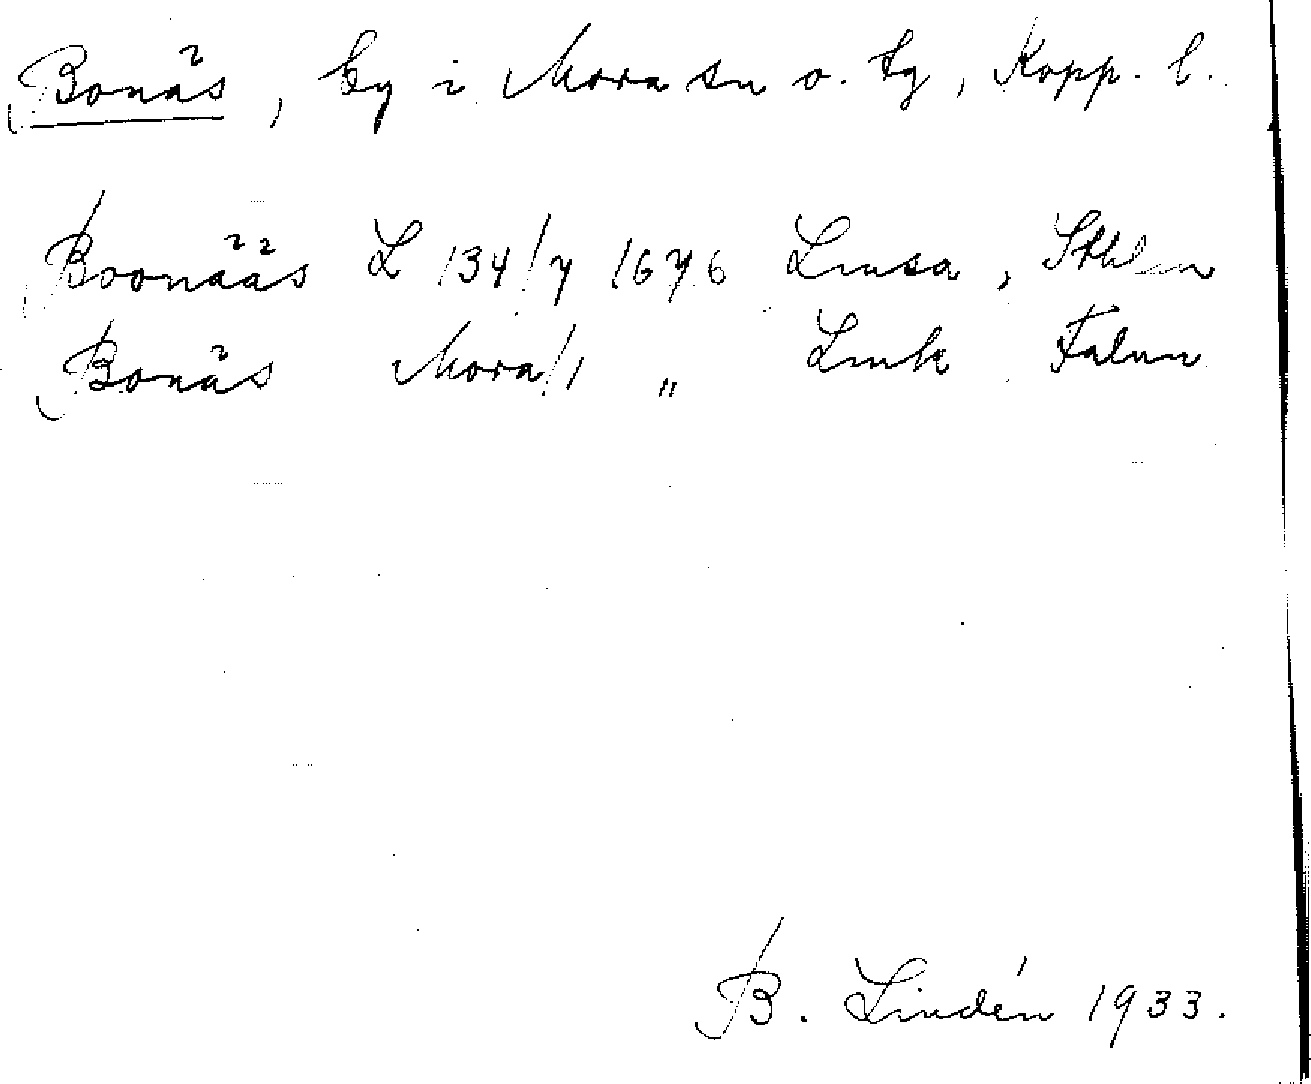 Bonäs, by i Mora sn o. tg, Kopp. l.
Boonääs L 134/7 1676 Lmsa, Sthlm
Bonäs Mora/1 " Lmk Falun
B. Lindén 1933.